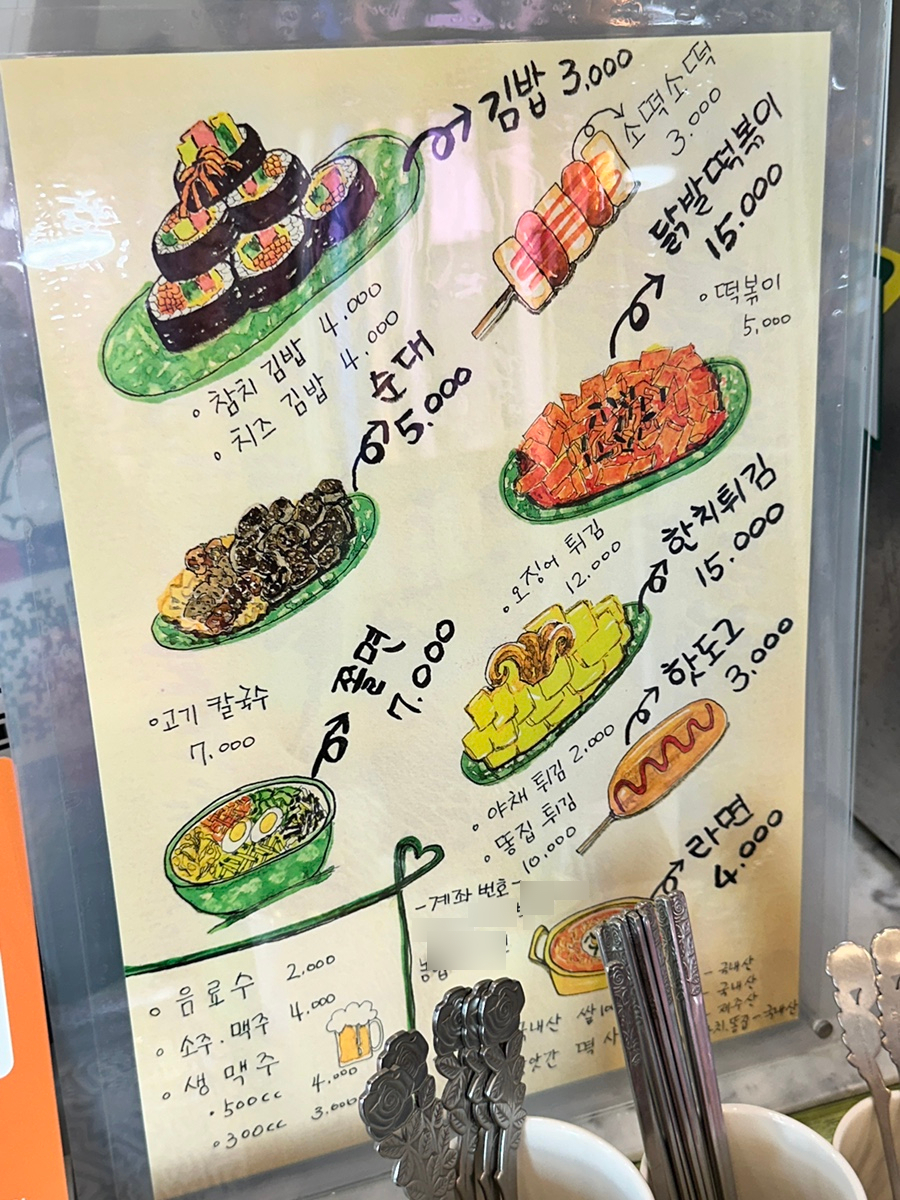 김밥 3,000
소떡소떡
3.000
닭발떡볶이
15.000
◦ 떡볶이
5,000
◦ 참치 김밥 4.000
◦ 치즈 김밥 4.000
순대
5.000
한치튀김
15.000
◦ 오징어 튀김
12.000
쫄면
7.000
◦ 고기 칼국수
7.000
핫도그
3.000
◦ 야채 튀김 2.000
◦ 똥집 튀김
10.000
라면
4.000
- 계좌 번호 -
◦ 음료수 2.000
◦ 소주. 맥주 4.000
◦ 생 맥주
◦ 500cc 4.000
◦ 300cc 3.000
- 국내산
- 국내산
똥집 - 국내산